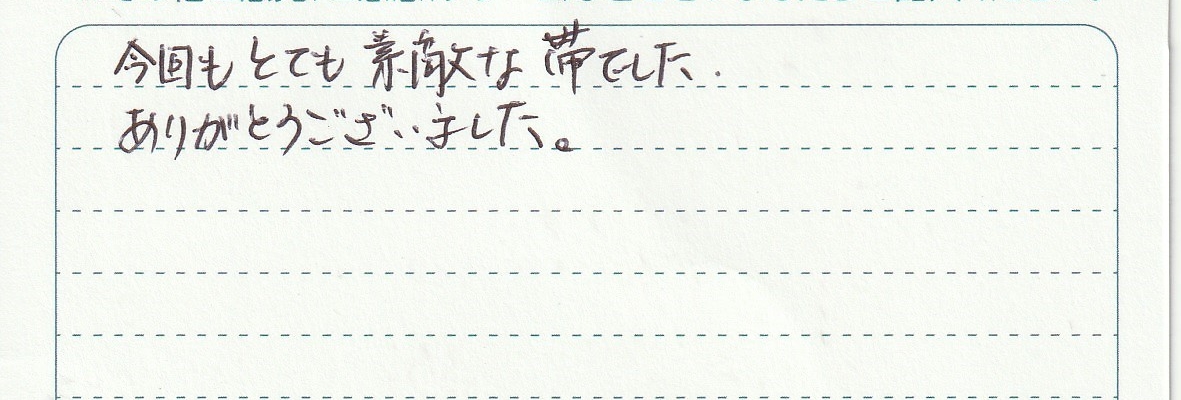 今回もとても素敵な帯でした.
ありがとうございました。